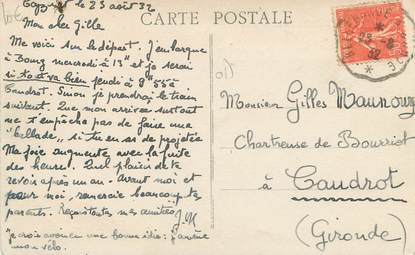 23 août 32
CARTE POSTALE
Mon cher Gille
Me voici sur le départ. J'embarque
à Bourg mercredi à 13h et je serai
si tout va bien jeudi à 8h55 à
Caudrot. Sinon je prendrai le train
suivant. Que mon arrivée surtout
ne t'empêche pas de faire une
"ballade" si tu en as de projetée
Ma joie augmente avec la fuite
des heures. Quel plaisir de te
revoir après un an. Avant moi et
pour moi, remercie beaucoup tes
parents. mes amitiés J.M
je crois avoir une bonne idée : j'amène
mon vélo.
Monsieur Gilles Maunoury
Chartreuse de Bourriot
à Caudrot
(Gironde)